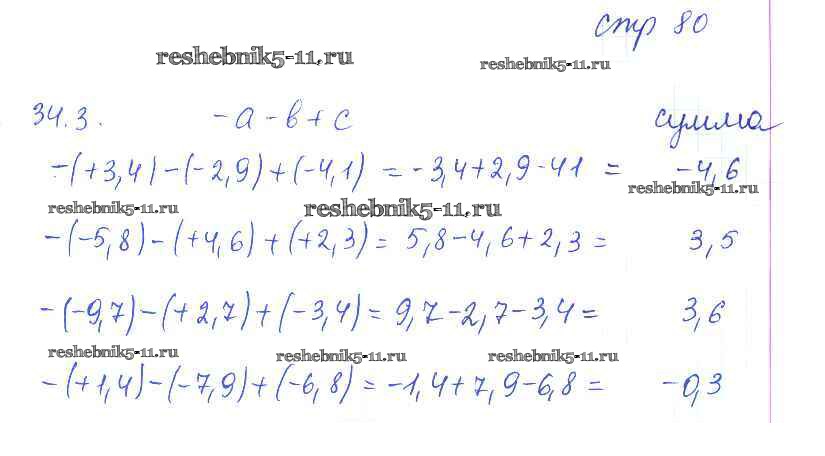 стр 80
reshebnik5-11.ru
reshebnik5-11.ru
34.3. -a-b+c сумма
-(+3,4)-(-2,9)+(-4,1) = -3,4+2,9-41 = -4,6
reshebnik5-11.ru
reshebnik5-11.ru reshebnik5-11.ru
-(-5,8)-(+4,6)+(+2,3) = 5,8-4,6+2,3 = 3,5
-(-9,7)-(+2,7)+(-3,4) = 9,7-2,7-3,4 = 3,6
reshebnik5-11.ru reshebnik5-11.ru reshebnik5-11.ru
-(+1,4)-(-7,9)+(-6,8) = -1,4+7,9-6,8 = -0,3